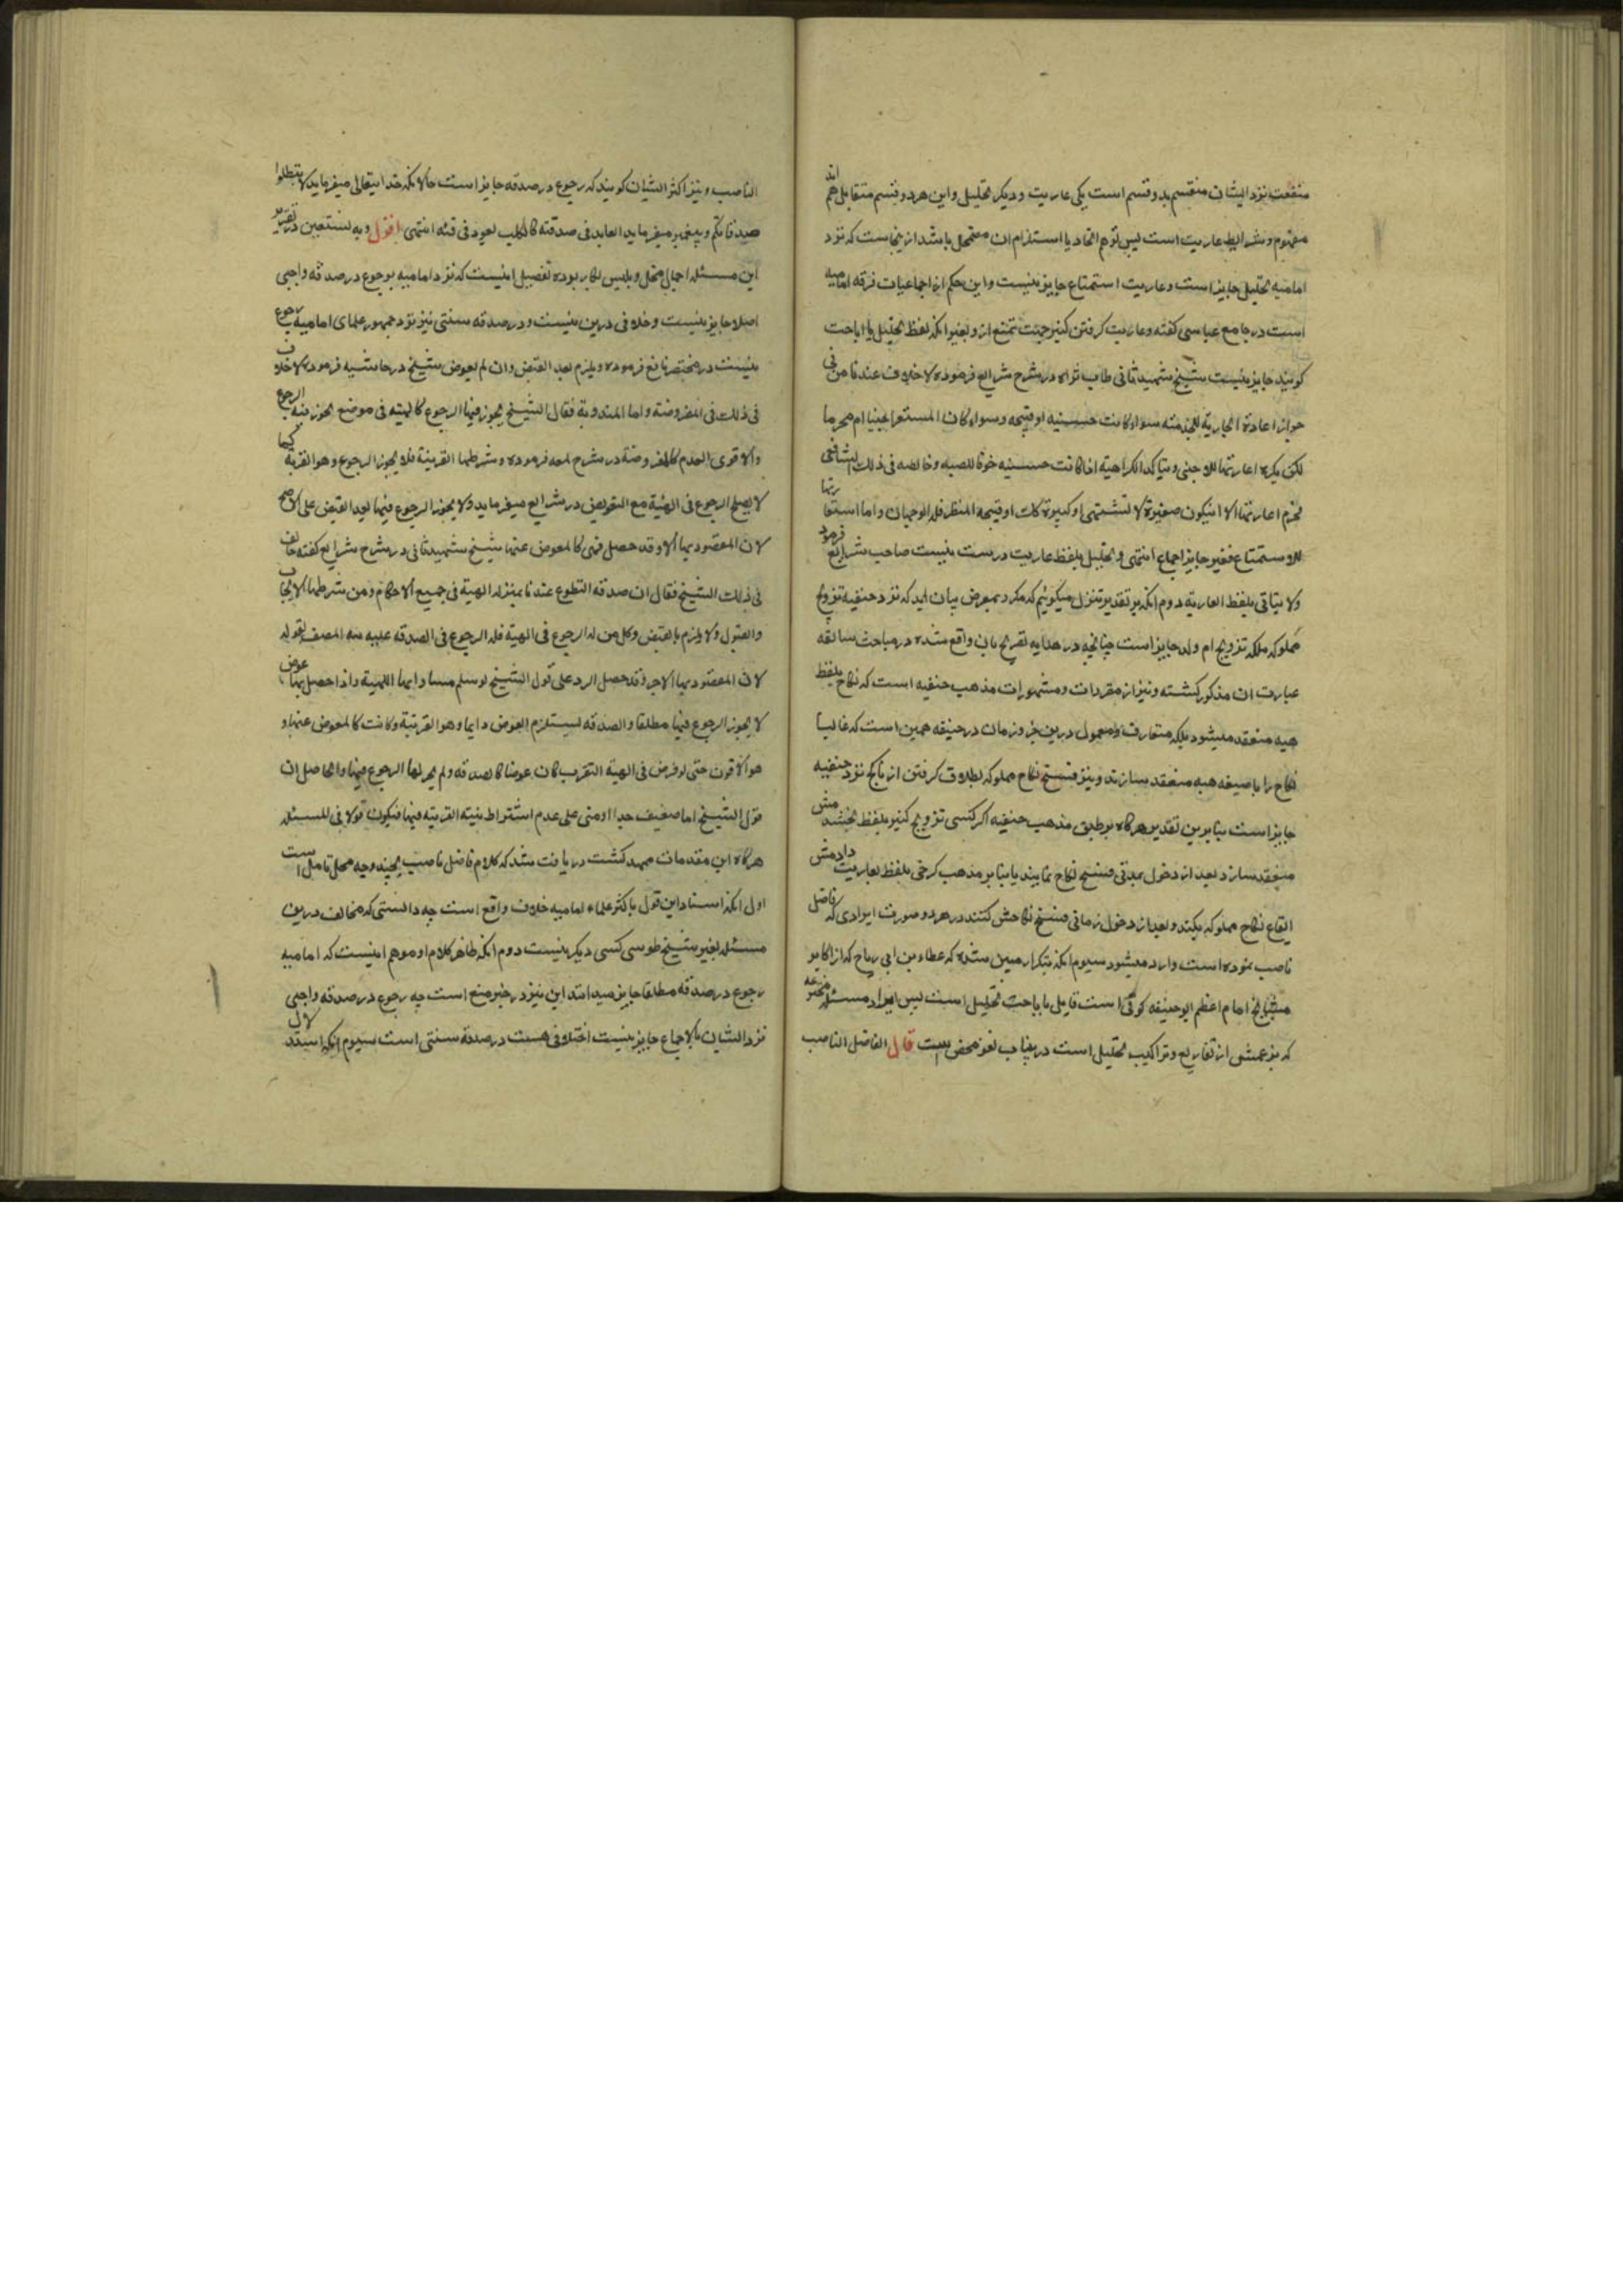 منفعت نزد ایشان منقسم بدو قسم است یکی عاریت و دیگر تحلیل و این هر دو قسم متقابل هم اند
مفهوم و شرایط عاریت است پس توهم اتحاد یا استلزام ان متمحل باشد ازینجاست که نزد
امامیه تحلیل جایز است و عاریت استمتاع جایز نیست و این حکم از اجماعیات فرقه امامیه
است در جامع عباسی کفته و عاریت کرفتن کنیز جهت تمتع از و بغیر انکه لفظ تحلیل یا اباحت
کویند جایز نیست شیخ شهید ثانی طاب ثراه در شرح شرایع فرموده لا خلاف عندنا من فی
جواز اعادة الجاریة للخدمته سواء کانت حسنیه او قبیحه و سواء کان المستعیر اجنبیا ام محرما
لکن یکره اعارتها للاجنبی و یتاکد الکراهیة اذا کانت حسنیه خوفا للصبیه و خالصه فی ذلک الشافعی
فحرم اعارتها الا ان یکون صغیرة لا تشتهی او کبیرة کانت او قبیحه المنظر فله الوجهان و اما استعارتها
للاستمتاع فغیر جایز اجماع انتهی و تحلیل بلفظ عاریت درست نیست صاحب شرایع فرمود
ولا یتاتی بلفظ العاریة دوم انکه بر تقدیر تنزل میکوئیم که مکرر بمعرض بیان امد که نزد حنفیه تزویج
مملوکه بلکه تزویج ام ولد جایز است چنانچه در هدایه تصریح بان واقع شده در مباحث سابقه
عبارت ان مذکور کشته و نیز از مقررات و مشهورات مذهب حنفیه است که نکاح بلفظ
هبه منعقد میشود بلکه متعارف و معمول درین جزو زمان در حنفیه همین است که غالبا
نکاح را با صیغه هبه منعقد سازند و نیز فسخ نکاح مملوکه بطلاق کرفتن از ناکح نزد حنفیه
جایز است بنابرین تقدیر هرکاه بر طبق مذهب حنفیه اکر کسی تزویج کنیز بلفظ بخشیدمش
منعقد سازد بعد از دخول بمدتی فسخ نکاح نمایند یا بنا بر مذهب کرخی بلفظ بعاریت دادمش
ایقاع نکاح مملوکه بکند و بعد از دخول زمانی فسخ نکاحش کنند در هر دو صورت ایرادی که فاضل
ناصب نموده است وارد میشود سیوم انکه بتکرار مبین شده که عطاء بن ابی رباح که از اکابر
مشایخ امام اعظم ابو حنیفه کوفی است قایل باباحت تحلیل است پس ایراد مسئله مخترعه
که بزعمش از تفاریع و تراکیب تحلیل است درینباب لغو محض است قال الفاضل الناصب
الناصب و نیز اکثر ایشان کویند که رجوع در صدقه جایز است حال انکه خدایتعالی میفرماید لا تبطلوا
صدقاتکم و پیغمبر میفرماید العاید فی صدقته کالکلب یعود فی قیئه انتهی اقول و به نستعین در تقریر
این مسئله اجمال مخل و تلبیس بکار برده تفصیل اینست که نزد امامیه رجوع در صدقه واجبی
اصلا جایز نیست و خلافی درین نیست و در صدقه سنتی نیز نزد جمهور علمای امامیه رجوع
نیست در مختصر نافع فرموده و یلزم بعد القبض و ان لم یعوض شیخ در حاشیه فرموده لا خلاف
فی ذلک فی المفروضة و اما المندوبة فقال الشیخ یجوز فیها الرجوع کالهبة فی موضع یجوز فیه الرجوع
و الاقوی العدم کالمفروضة در شرح لمعه فرموده و شرطها القربة فلا یجوز الرجوع و هو القربة کما
لا یصح الرجوع فی الهبة مع التعویض در شرایع میفرماید ولا یجوز الرجوع فیها بعد القبض علی الاصح
لان المقصود بها الاجر وقد حصل فهی کالمعوض عنها شیخ شهید ثانی در شرح شرایع کفته خالف
فی ذلک الشیخ فقال ان صدقة التطوع عندنا بمنزلة الهبة فی جمیع الاحکام و من شرطها الایجاب
و القبول ولا یلزم بالقبض و کل من له الرجوع فی الهبة فله الرجوع فی الصدقة علیه نبه المصنف بقوله
لان المقصود بها الاجر وقد حصل الرد علی قول الشیخ لو سلم مساواتها للهبة و اذا حصل بها عوض
لا یجوز الرجوع فیها مطلقا و الصدقه یستلزم العوض دایما و هو القربة و کانت کالمعوض عنها و
هو الاقوی حتی لو فرض فی الهبة التقرب کان عوضا کالصدقة و لم یجز لها الرجوع فیها و الحاصل ان
قول الشیخ اما ضعیف جدا او مبنی علی عدم اشتراط نیة القربة فیها فیکون قولا فی المسئله
هرکاه این مقدمات ممهد کشت دریافت شد که کلام فاضل ناصب بچند وجه محل تامل است
اول انکه اسناد این قول باکثر علماء امامیه خلاف واقع است چه دانستی که مخالف درین
مسئله بغیر شیخ طوسی کسی دیکر نیست دوم انکه ظاهر کلام او موهم اینست که امامیه
رجوع در صدقه مطلقا جایز میدانند این نیز در خبر منع است چه رجوع در صدقه واجبی
نزد ایشان بالاجماع جایز نیست اختلافی هست در صدقه سنتی است سیوم انکه استدلال